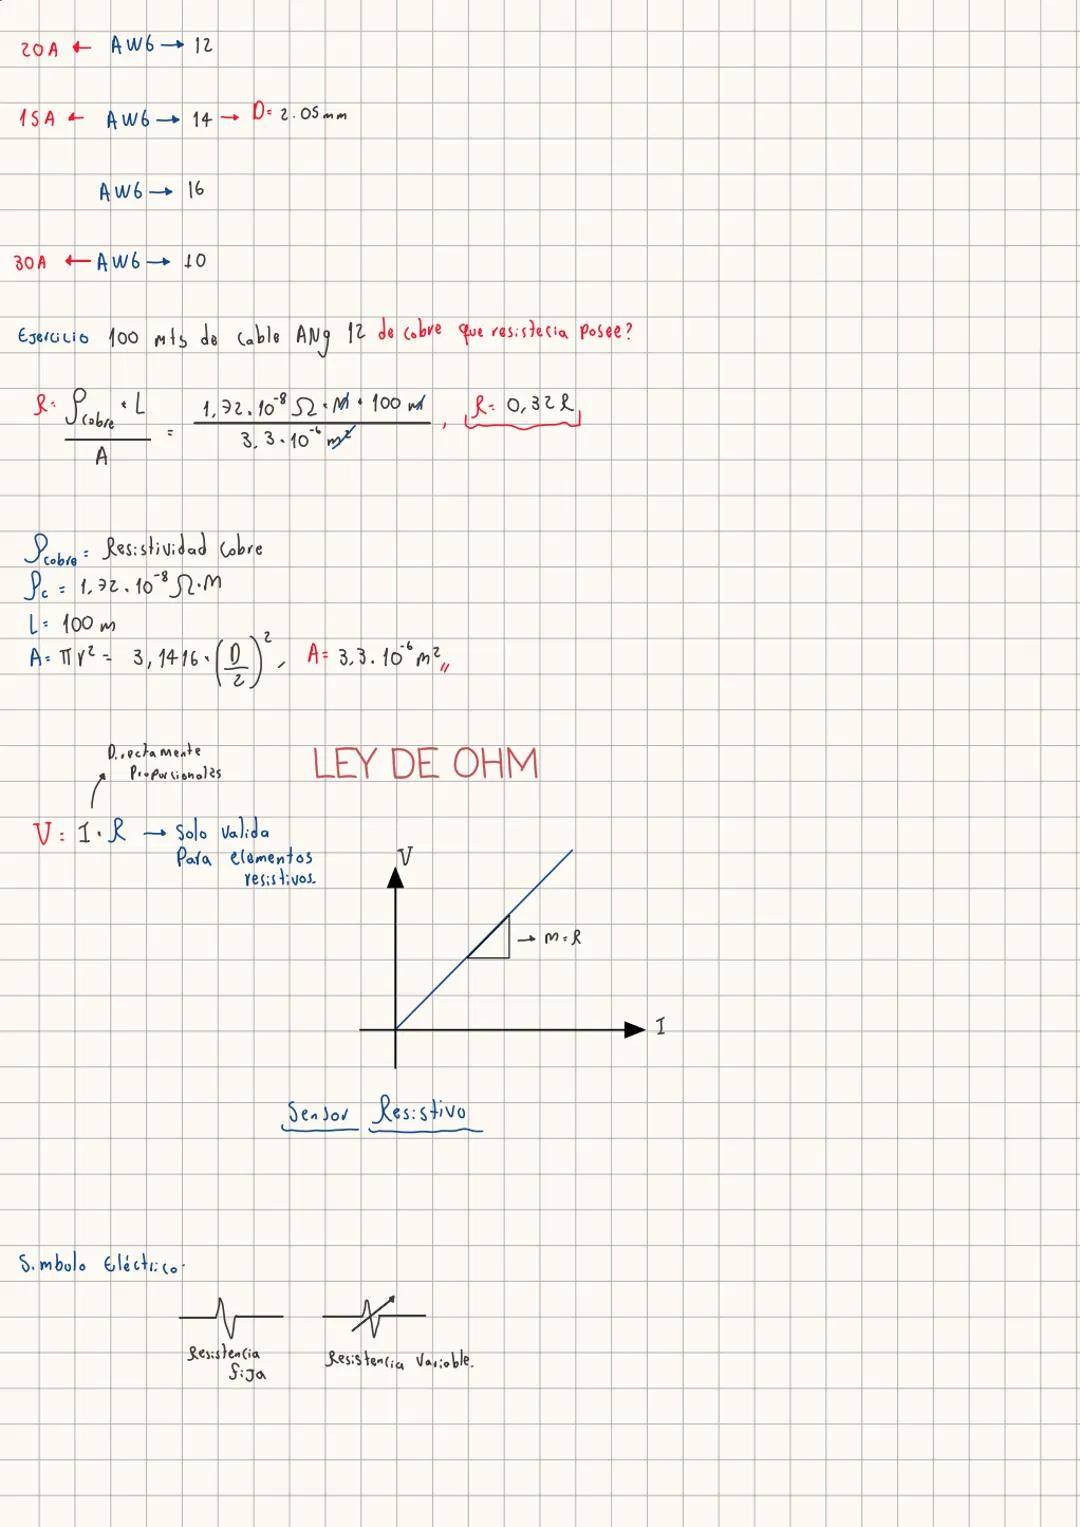 20A ← AWG → 12
15A ← AWG → 14 → D= 2.05mm
AWG → 16
30A ← AWG → 10
Ejercicio 100 mts de cable ANg 12 de cobre que resistecia posee?
R= ρcobre · L / A = 1,72.10⁻⁸ Ω·M · 100 m / 3,3·10⁻⁶ m² , R= 0,32 Ω
ρcobre = Resistividad Cobre
ρc = 1,72.10⁻⁸ Ω·M
L= 100 m
A= πr² = 3,1416·(D/2)² , A= 3,3.10⁻⁶ m² //
Directamente
Proporcionales
LEY DE OHM
V= I·R → Solo valida
Para elementos
resistivos.
V
→ m=R
I
Sensor Resistivo
Simbolo Eléctrico.
Resistencia
fija
Resistencia Variable.